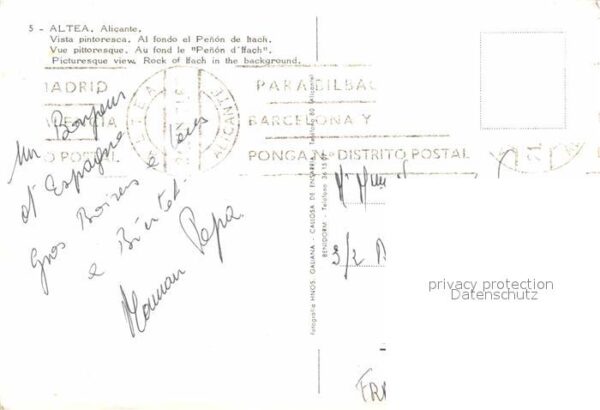 5 - ALTEA. Alicante.
Vista pintoresca. Al fondo el Peñón de Ifach.
Vue pittoresque. Au fond le "Peñón d'Ifach".
Picturesque view. Rock of Ifach in the background.
MADRID
POSTAL
ALTEA
ALICANTE
PARA BILBAO
BARCELONA Y
PONGA Nº DISTRITO POSTAL
Un Bonjour
d'Espagne
Gros Baisers à tous
à Bientôt
Maman Papa.
Fotografía HNOS. GALIANA - CALLOSA DE ENSARRIA - Teléfono 80 (Alicante)
BENIDORM - Teléfono
3/2
privacy protection
Datenschutz